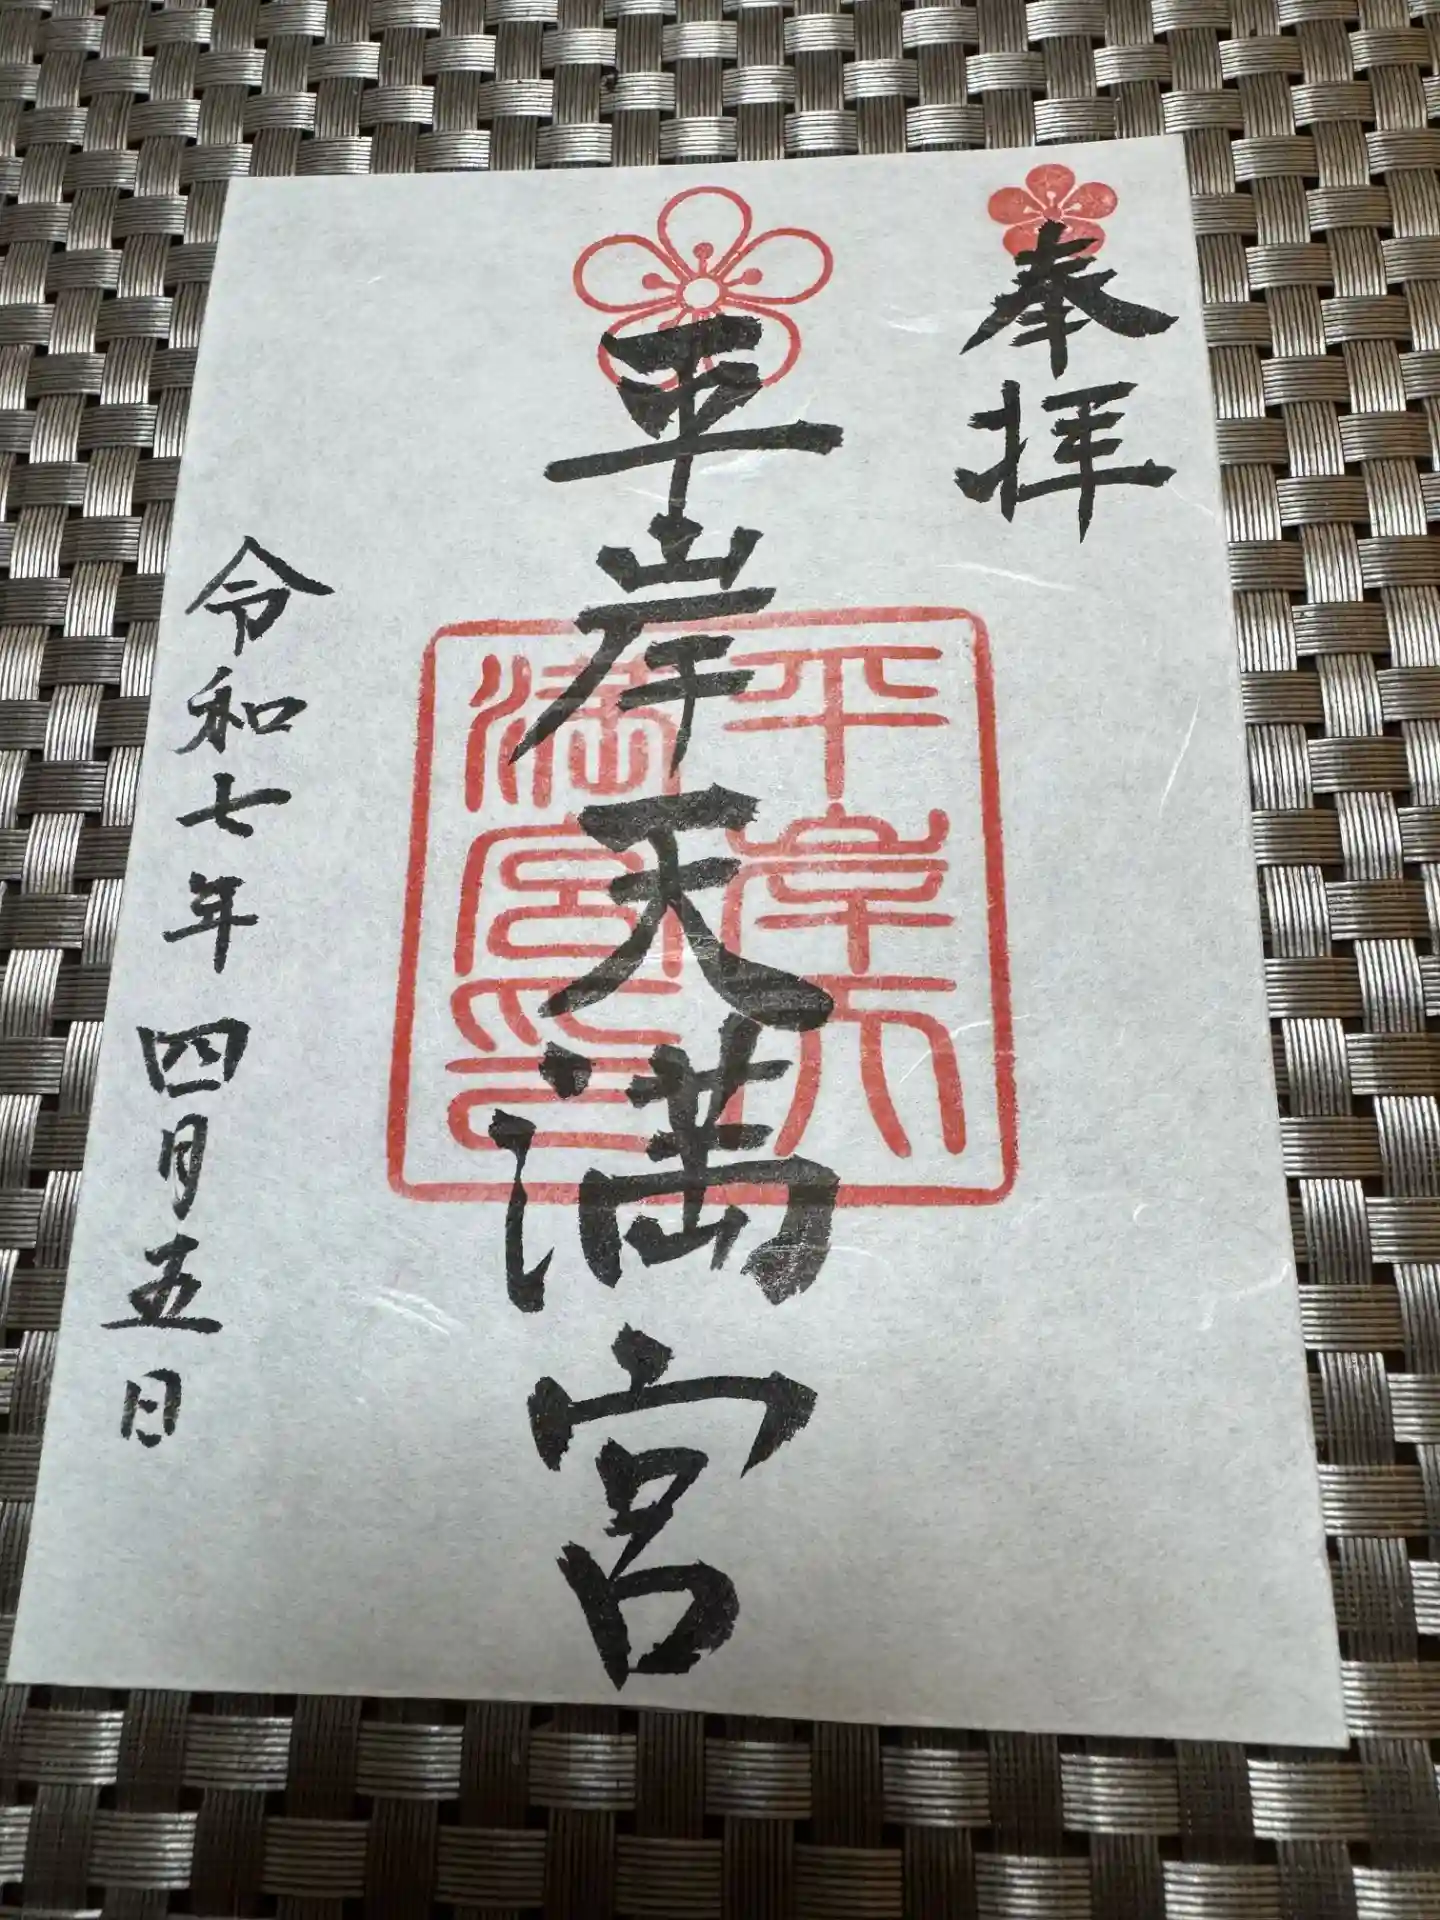 奉拝
平岸天満宮
平岸天
満宮印
令和七年四月五日